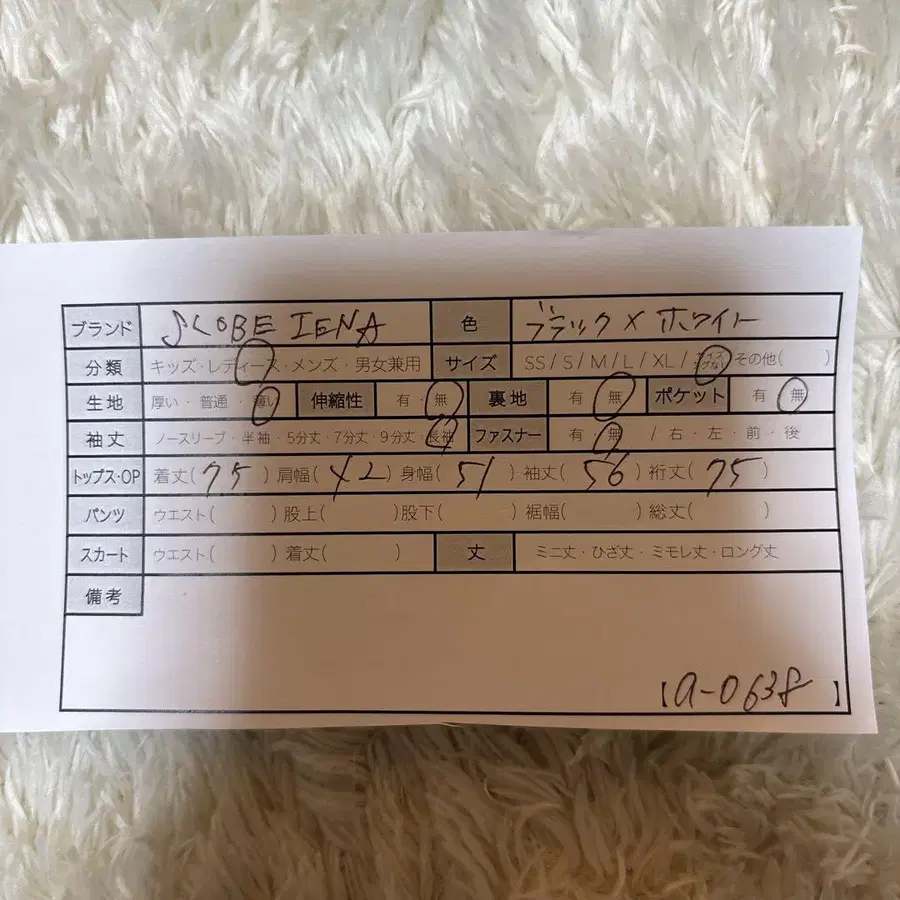 ブランド SLOBE IENA 色 ブラック×ホワイト
分類 キッズ・レディース・メンズ・男女兼用 サイズ SS / S / M / L / XL / サイズ表記なし その他( )
生地 厚い・普通・薄い 伸縮性 有・無 裏地 有・無 ポケット 有・無
袖丈 ノースリーブ・半袖・5分丈・7分丈・9分丈・長袖 ファスナー 有・無 / 右・左・前・後
トップス・OP 着丈(75) 肩幅(42) 身幅(51) 袖丈(56) 裄丈(75)
パンツ ウエスト( ) 股上( ) 股下( ) 裾幅( ) 総丈( )
スカート ウエスト( ) 着丈( ) 丈 ミニ丈・ひざ丈・ミモレ丈・ロング丈
備考
【a-0638】